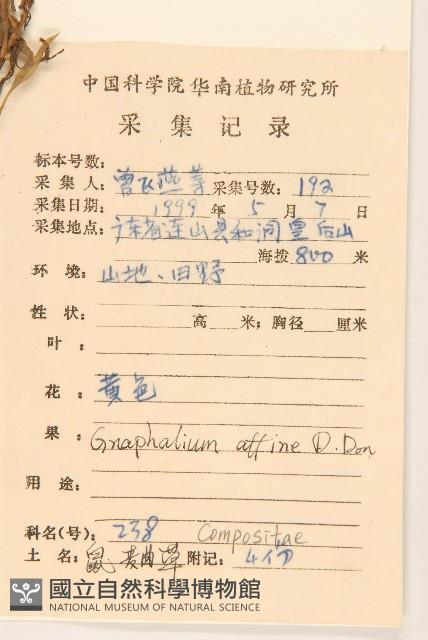 中国科学院华南植物研究所
采集记录
标本号数：
采集人：曾飞燕等 采集号数：192
采集日期：1999 年 5 月 7 日
采集地点：广东省连山县和洞皇后山
海拨 800 米
环境：山地、田野
性状： 高 米；胸径 厘米
叶：
花：黄色
果：
Gnaphalium affine D.Don
用途：
科名(号)：238 Compositae
土名：鼠麴草 附记：4份
國立自然科學博物館
NATIONAL MUSEUM OF NATURAL SCIENCE